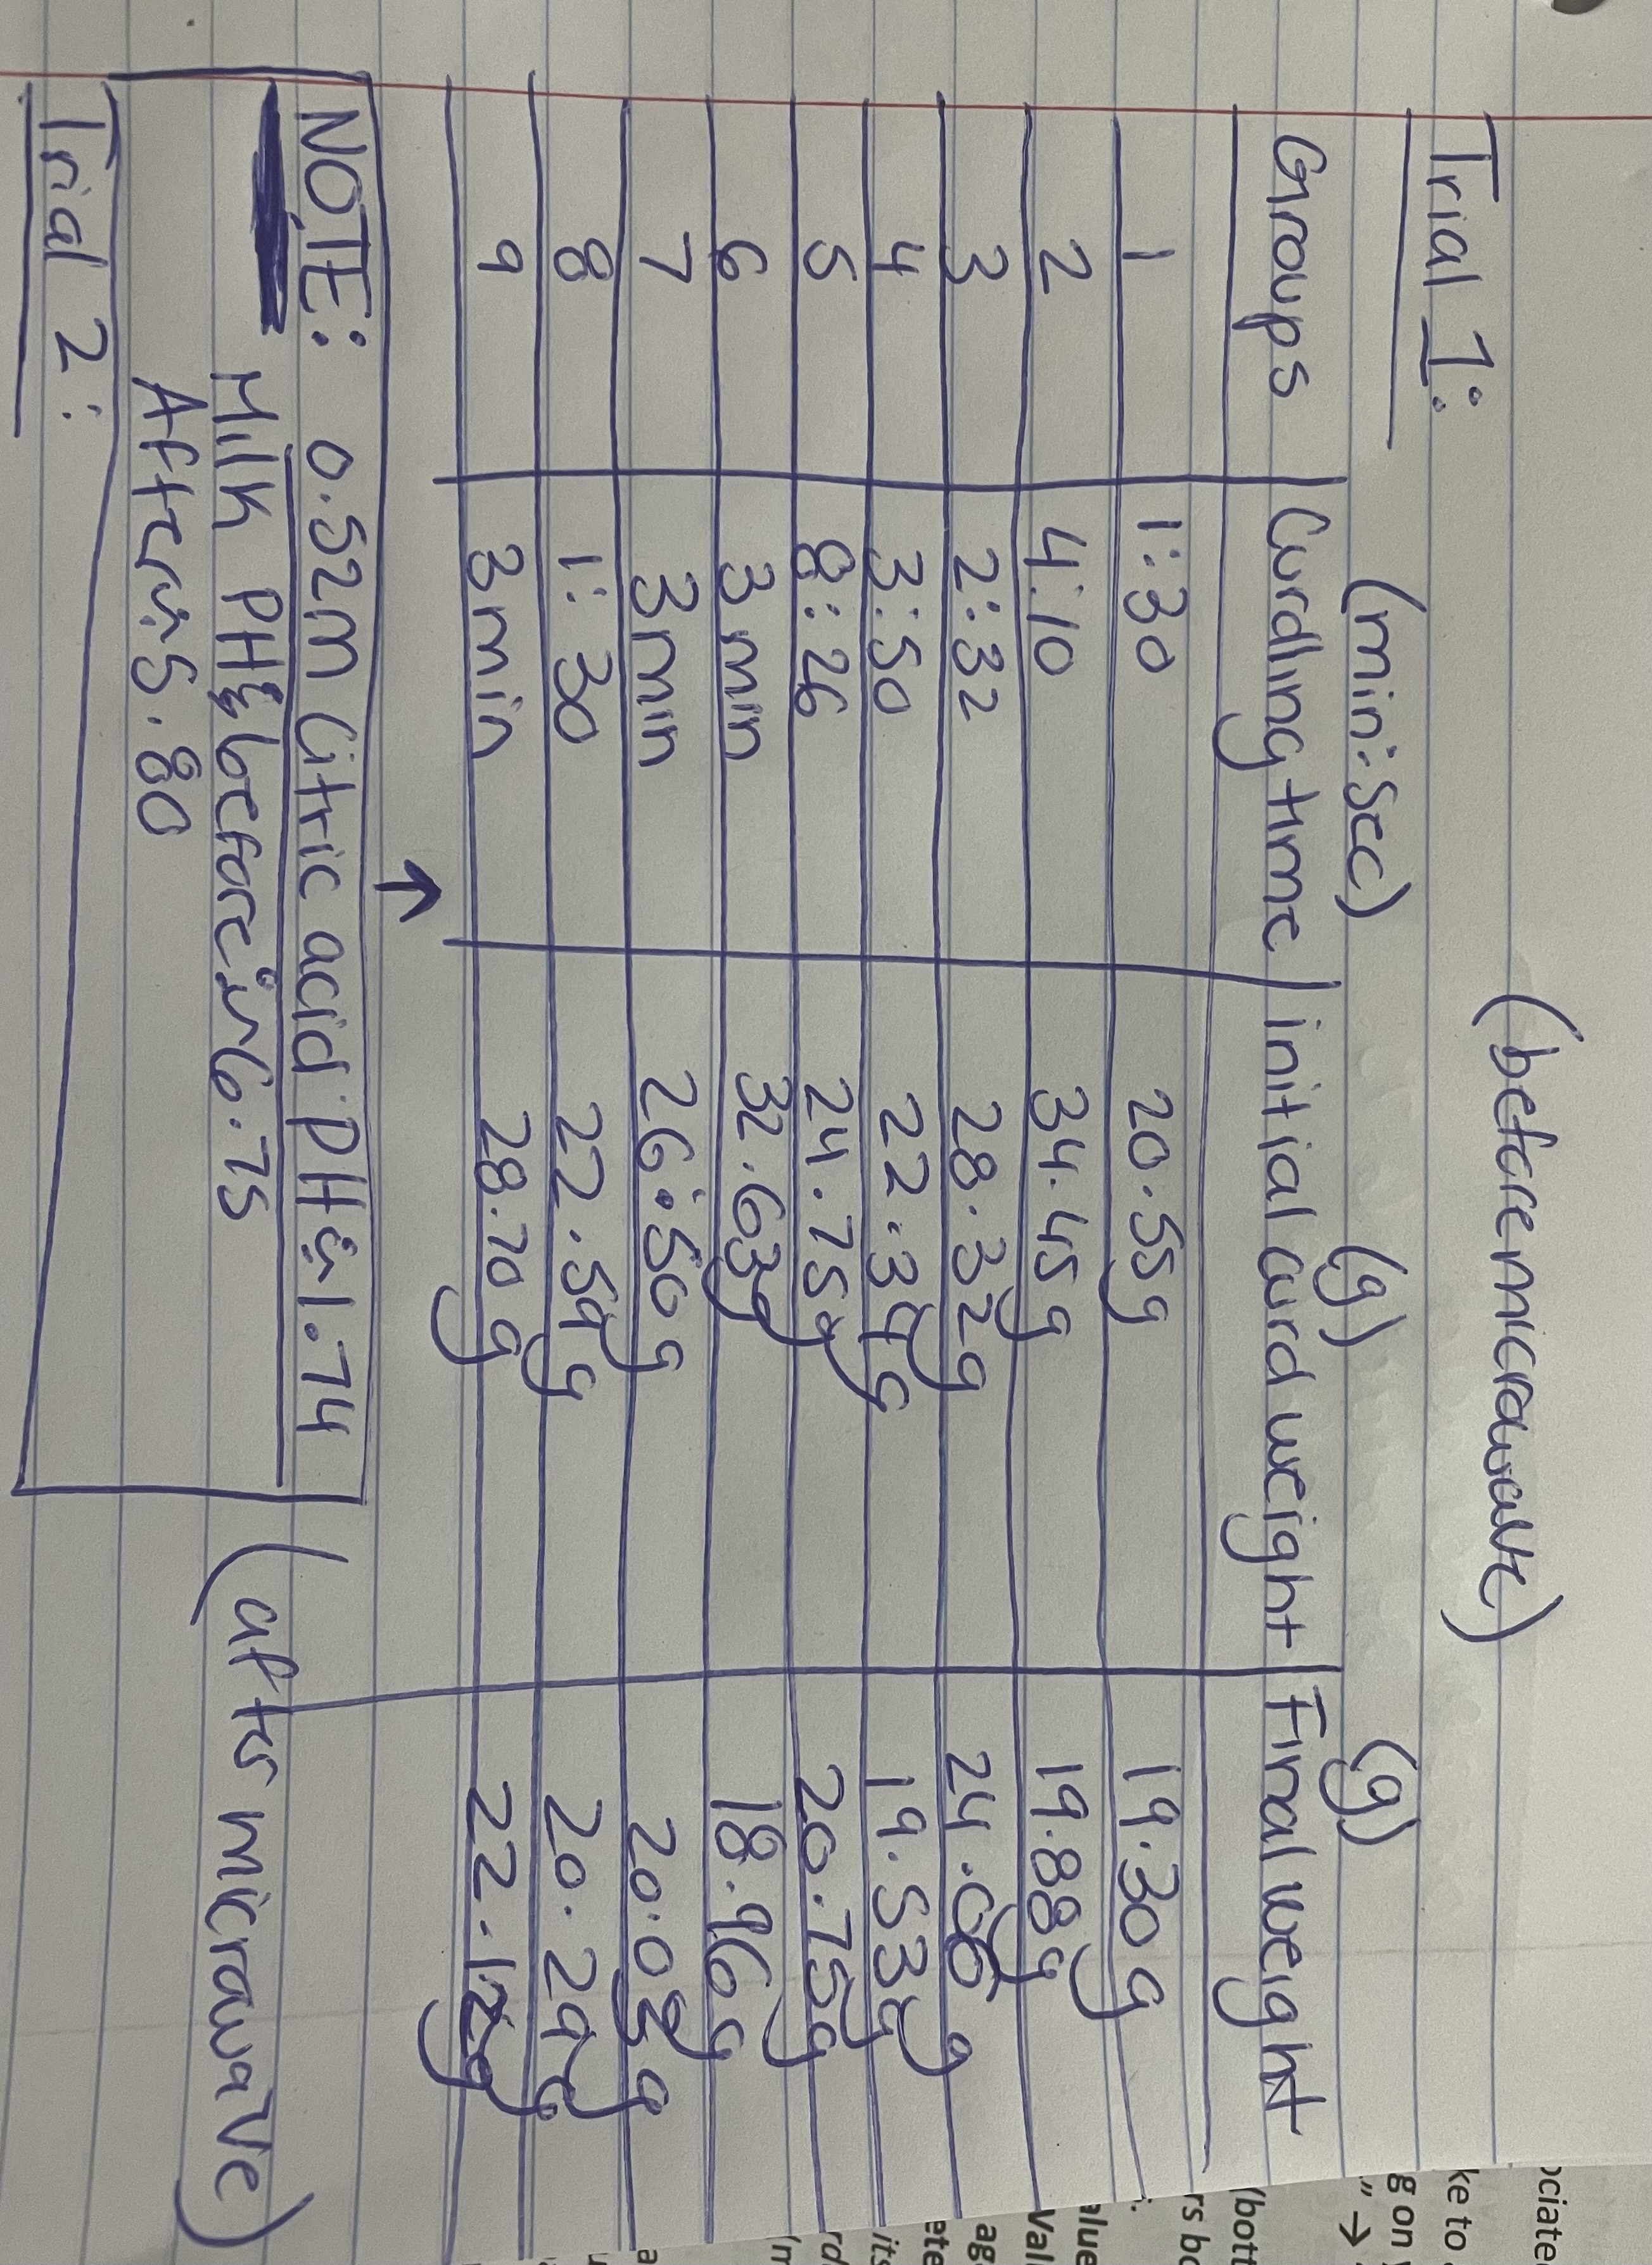 (before microwave)
Trial 1:
(min:sec) (g) (g)
Groups Curdling time initial curd weight Final weight
1 1:30 20.55g 19.30g
2 4:10 34.45g 19.88g
3 2:32 28.32g 24.06g
4 3:50 22.34g 19.53g
5 8:26 24.75g 20.75g
6 3 min 32.63g 18.96g
7 3min 26.50g 20.03g
8 1:30 22.59g 20.29g
9 3min 28.70g 22.12g
↑
NOTE: 0.52m Citric acid PH: 1.74
Milk PH before: 6.75
(after microwave)
After: 5.80
Trial 2:
ociate
ke to
g on
" →
/bott
rs bo
alue
Val
ag
ete
its
rd